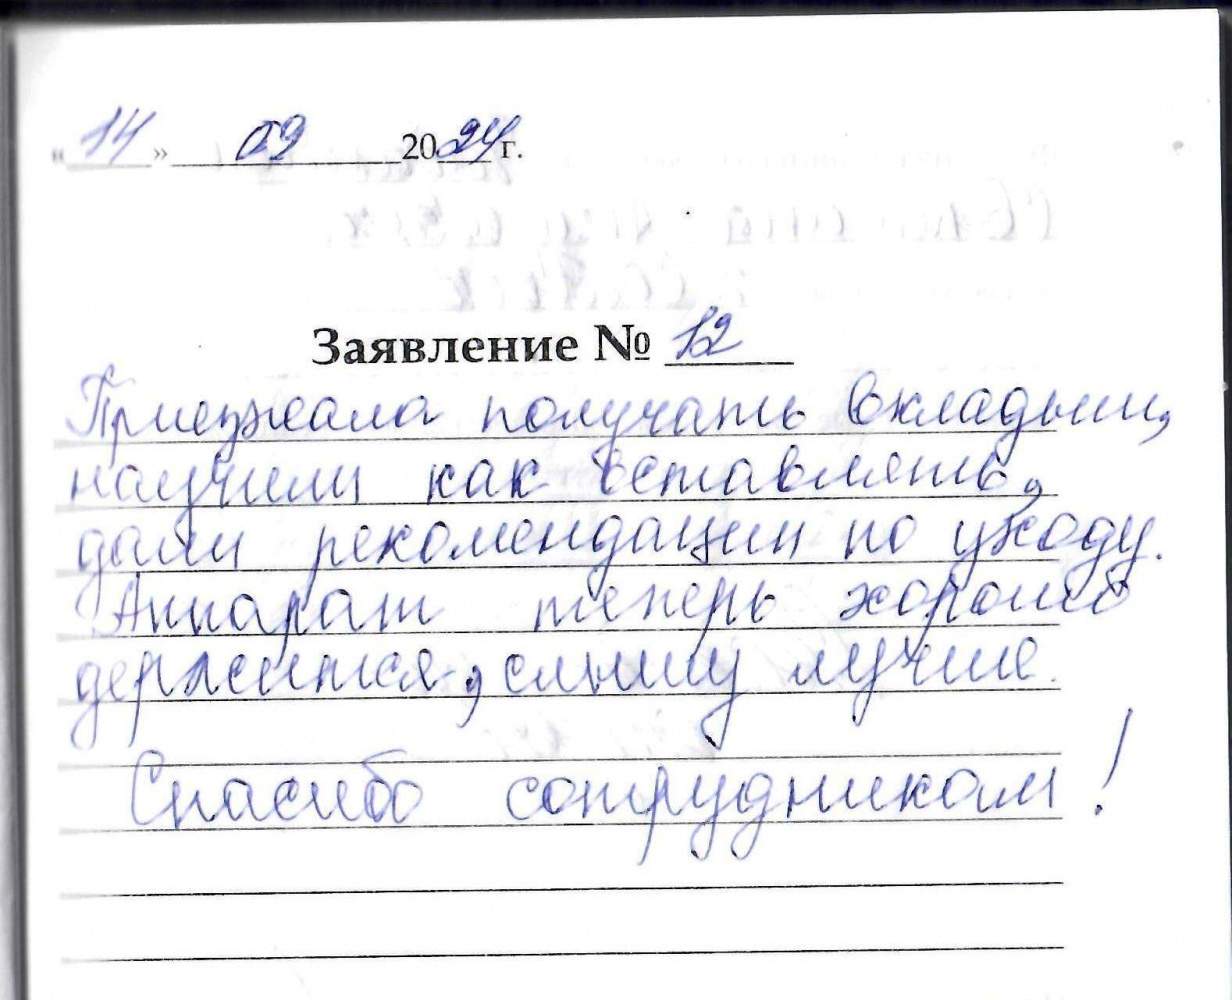 «14» 09 2024 г.
Заявление № 12
Приезжала получать вкладыши,
научили как вставлять,
дали рекомендации по уходу.
Аппарат теперь хорошо
держится, слышу лучше.
Спасибо сотрудникам!